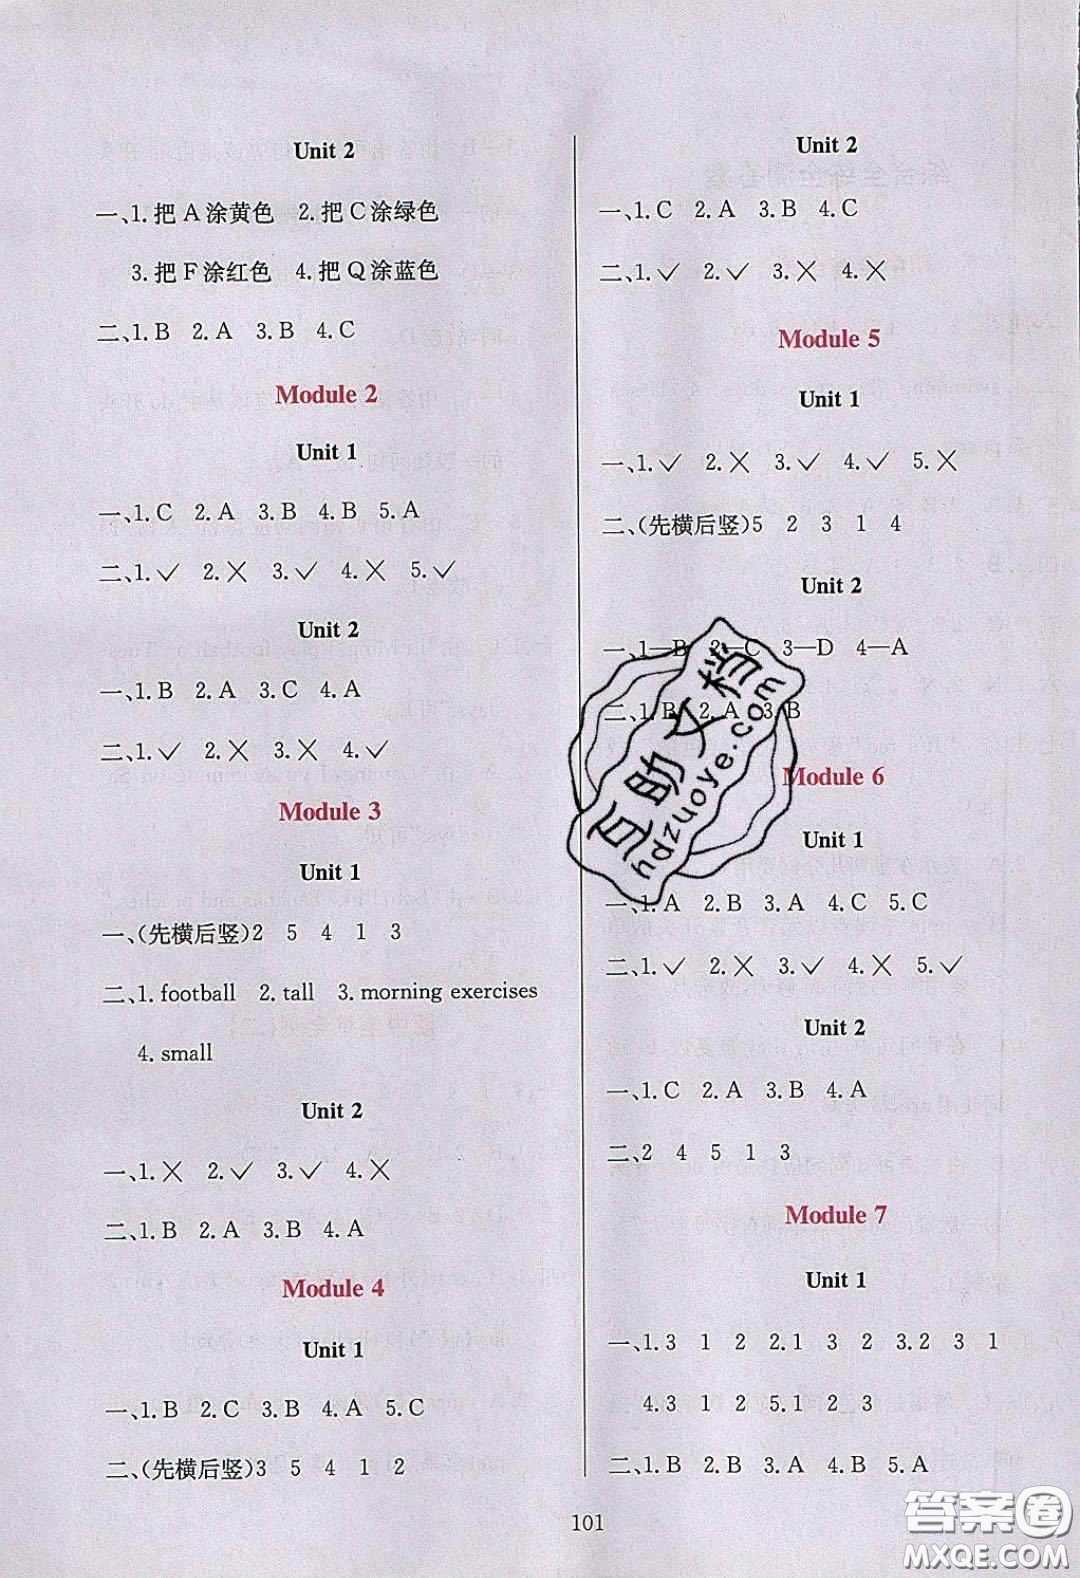 Unit 2
一、1. 把A涂黄色 2. 把C涂绿色
3. 把F涂红色 4. 把Q涂蓝色
二、1. B 2. A 3. B 4. C
Module 2
Unit 1
一、1. C 2. A 3. B 4. B 5. A
二、1. ✓ 2. ✗ 3. ✓ 4. ✗ 5. ✓
Unit 2
一、1. B 2. B 3. C 4. A
二、1. ✓ 2. ✗ 3. ✗ 4. ✓
Module 3
Unit 1
一、(先横后竖)2 5 4 1 3
二、1. football 2. tall 3. morning exercises
4. small
Unit 2
一、1. ✗ 2. ✓ 3. ✓ 4. ✗
二、1. B 2. A 3. B 4. A
Module 4
Unit 1
一、1. B 2. C 3. B 4. A 5. C
二、(先横后竖)3 5 4 1 2
Unit 2
一、1. C 2. A 3. B 4. C
二、1. ✓ 2. ✓ 3. ✗ 4. ✗
Module 5
Unit 1
一、1. ✓ 2. ✗ 3. ✓ 4. ✓ 5. ✗
二、(先横后竖)5 2 3 1 4
Unit 2
一、1—B 2—C 3—D 4—A
二、1. B 2. A 3. B
Module 6
Unit 1
一、1. A 2. B 3. A 4. C 5. C
二、1. ✓ 2. ✗ 3. ✓ 4. ✗ 5. ✓
Unit 2
一、1. C 2. A 3. B 4. A
二、2 4 5 1 3
Module 7
Unit 1
一、1. 3 1 2 2. 1 3 2 3. 2 3 1
4. 3 1 2 5. 1 2 3
二、1. B 2. B 3. A 4. B 5. A
101
百助文档
hdzuoye.com
答案圈
MXQE.COM